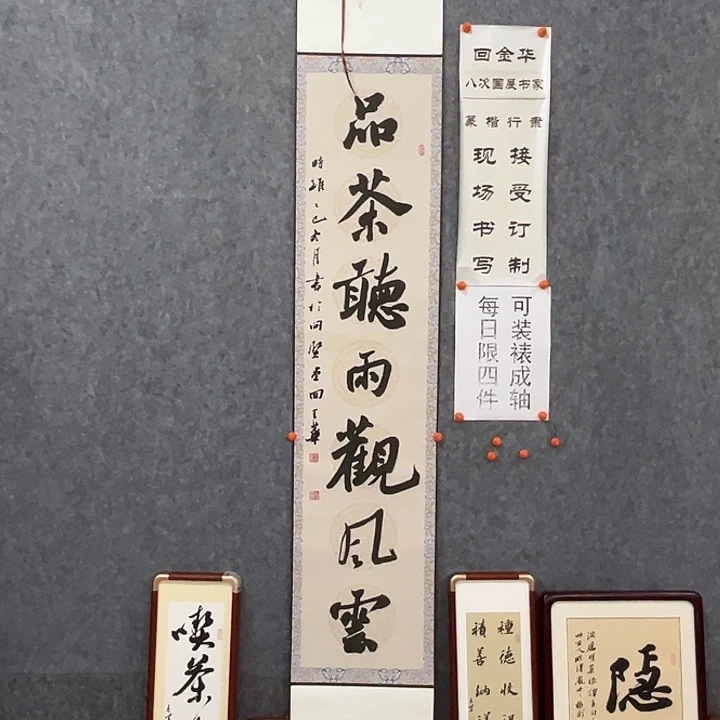 品茶聽雨觀风雲
時維乙巳冬月書於堂回金華
回金华
八次国展书家
篆楷行隶
接受订制
现场书写
可装裱成轴
每日限四件
喫茶
種德收
積善納
隱